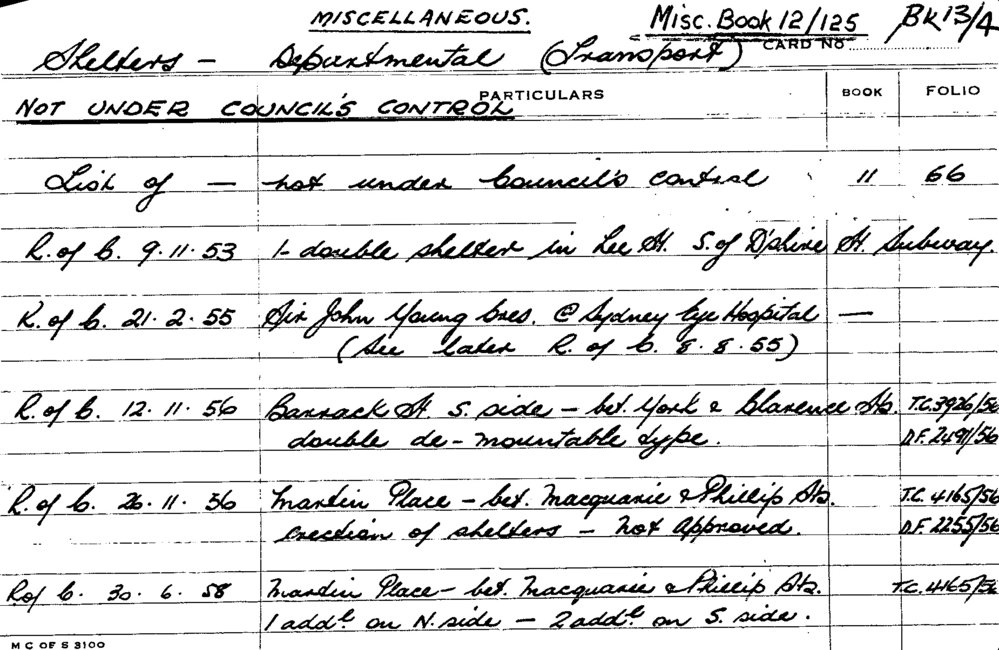 MISCELLANEOUS. Misc. Book 12/125 BK13/4
Shelters - Departmental (Transport) CARD NO
NOT UNDER COUNCIL'S CONTROL PARTICULARS BOOK FOLIO
List of - not under Council's control 11 66
R. of C. 9.11.53 1- double shelter in Lee St. S. of D'shire St. Subway.
R. of C. 21.2.55 Sir John Young Cres. @ Sydney Eye Hospital —
(See later R. of C. 8.8.55)
R. of C. 12.11.56 Barrack St. S. side - bet. York & Clarence Sts. T.C.3926/56
double de-mountable type. D.F.2491/56
R. of C. 26.11.56 Martin Place - bet. Macquarie & Phillip Sts. T.C. 4165/56
erection of shelters - not approved. D.F. 2255/56
R of C. 30.6.58 Martin Place - bet. Macquarie & Phillip Sts. T.C. 4165/56
1 addl on N. side - 2 addl on S. side.
M C OF S 3100